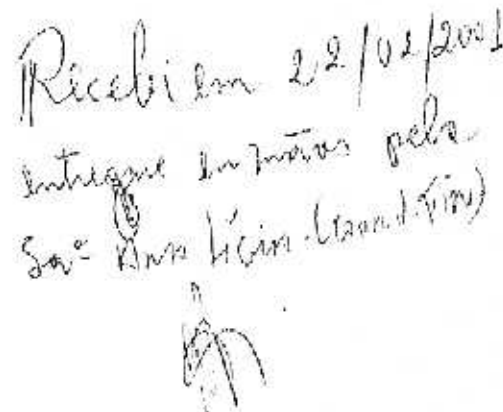 Recebi em 22/02/2001
entregue em mãos pela
Srª Ana Lícia